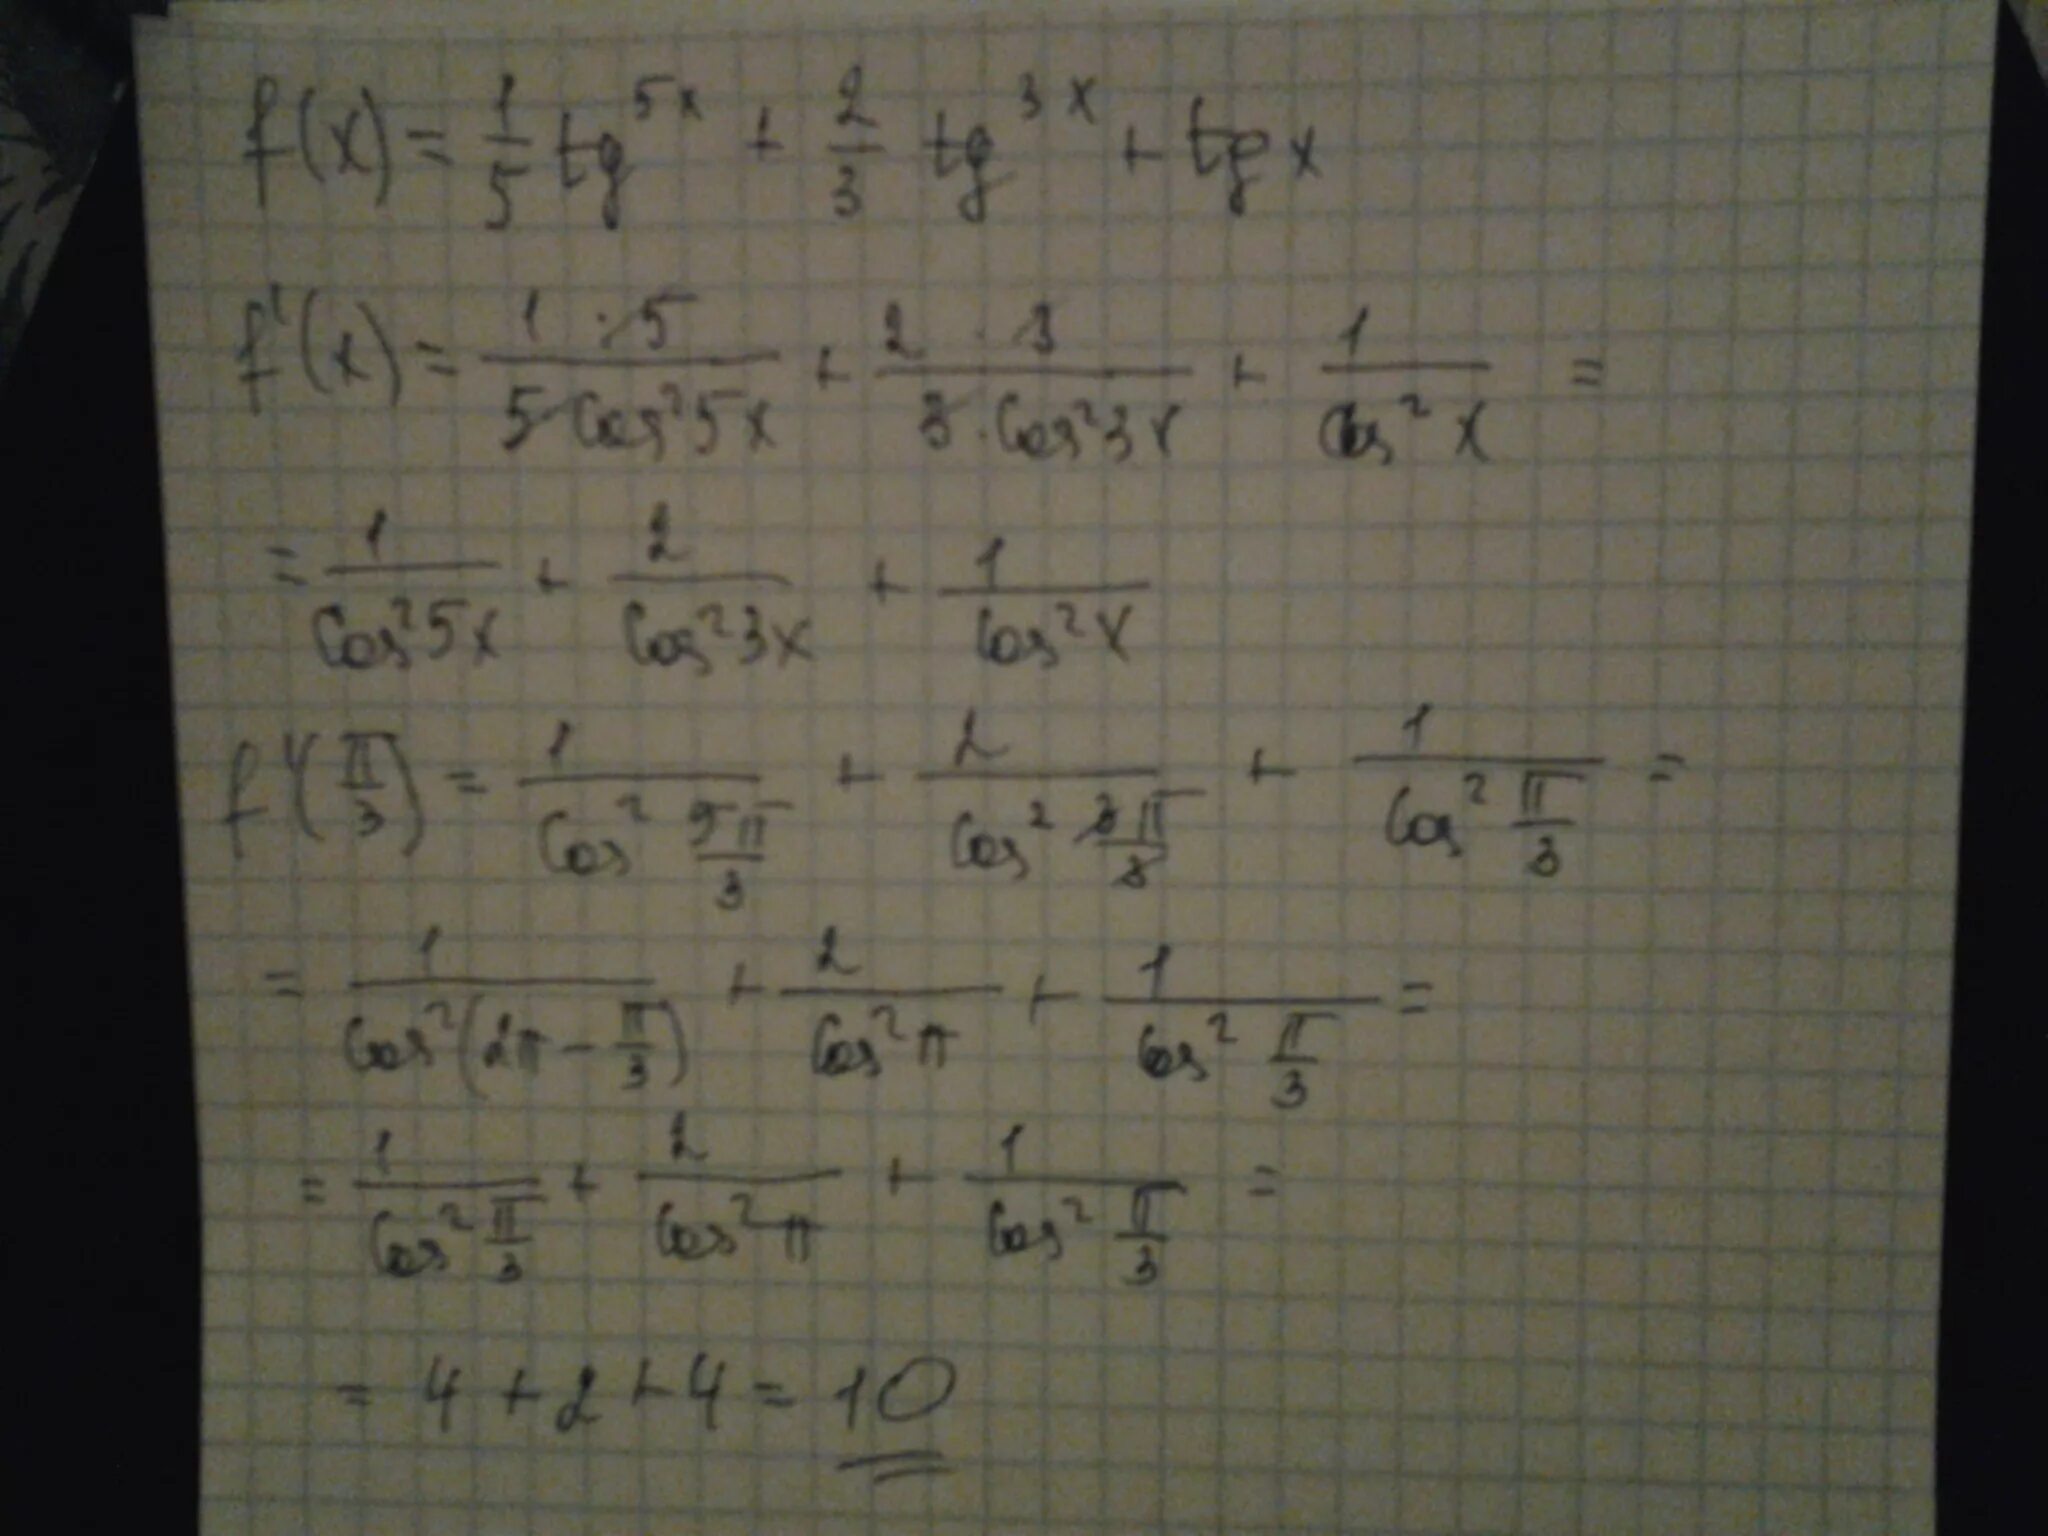 f(x) = 1/5 tg^5x + 2/3 tg^3x + tg x
f'(x) = (1 · 5)/(5 · Cos²5x) + (2 · 3)/(3 · Cos²3x) + 1/(Cos²x) =
= 1/(Cos²5x) + 2/(Cos²3x) + 1/(Cos²x)
f'(π/3) = 1/(Cos² 5π/3) + 2/(Cos² 3π/3) + 1/(Cos² π/3) =
= 1/(Cos²(2π − π/3)) + 2/(Cos²π) + 1/(Cos² π/3) =
= 1/(Cos² π/3) + 2/(Cos²π) + 1/(Cos² π/3) =
= 4 + 2 + 4 = 10